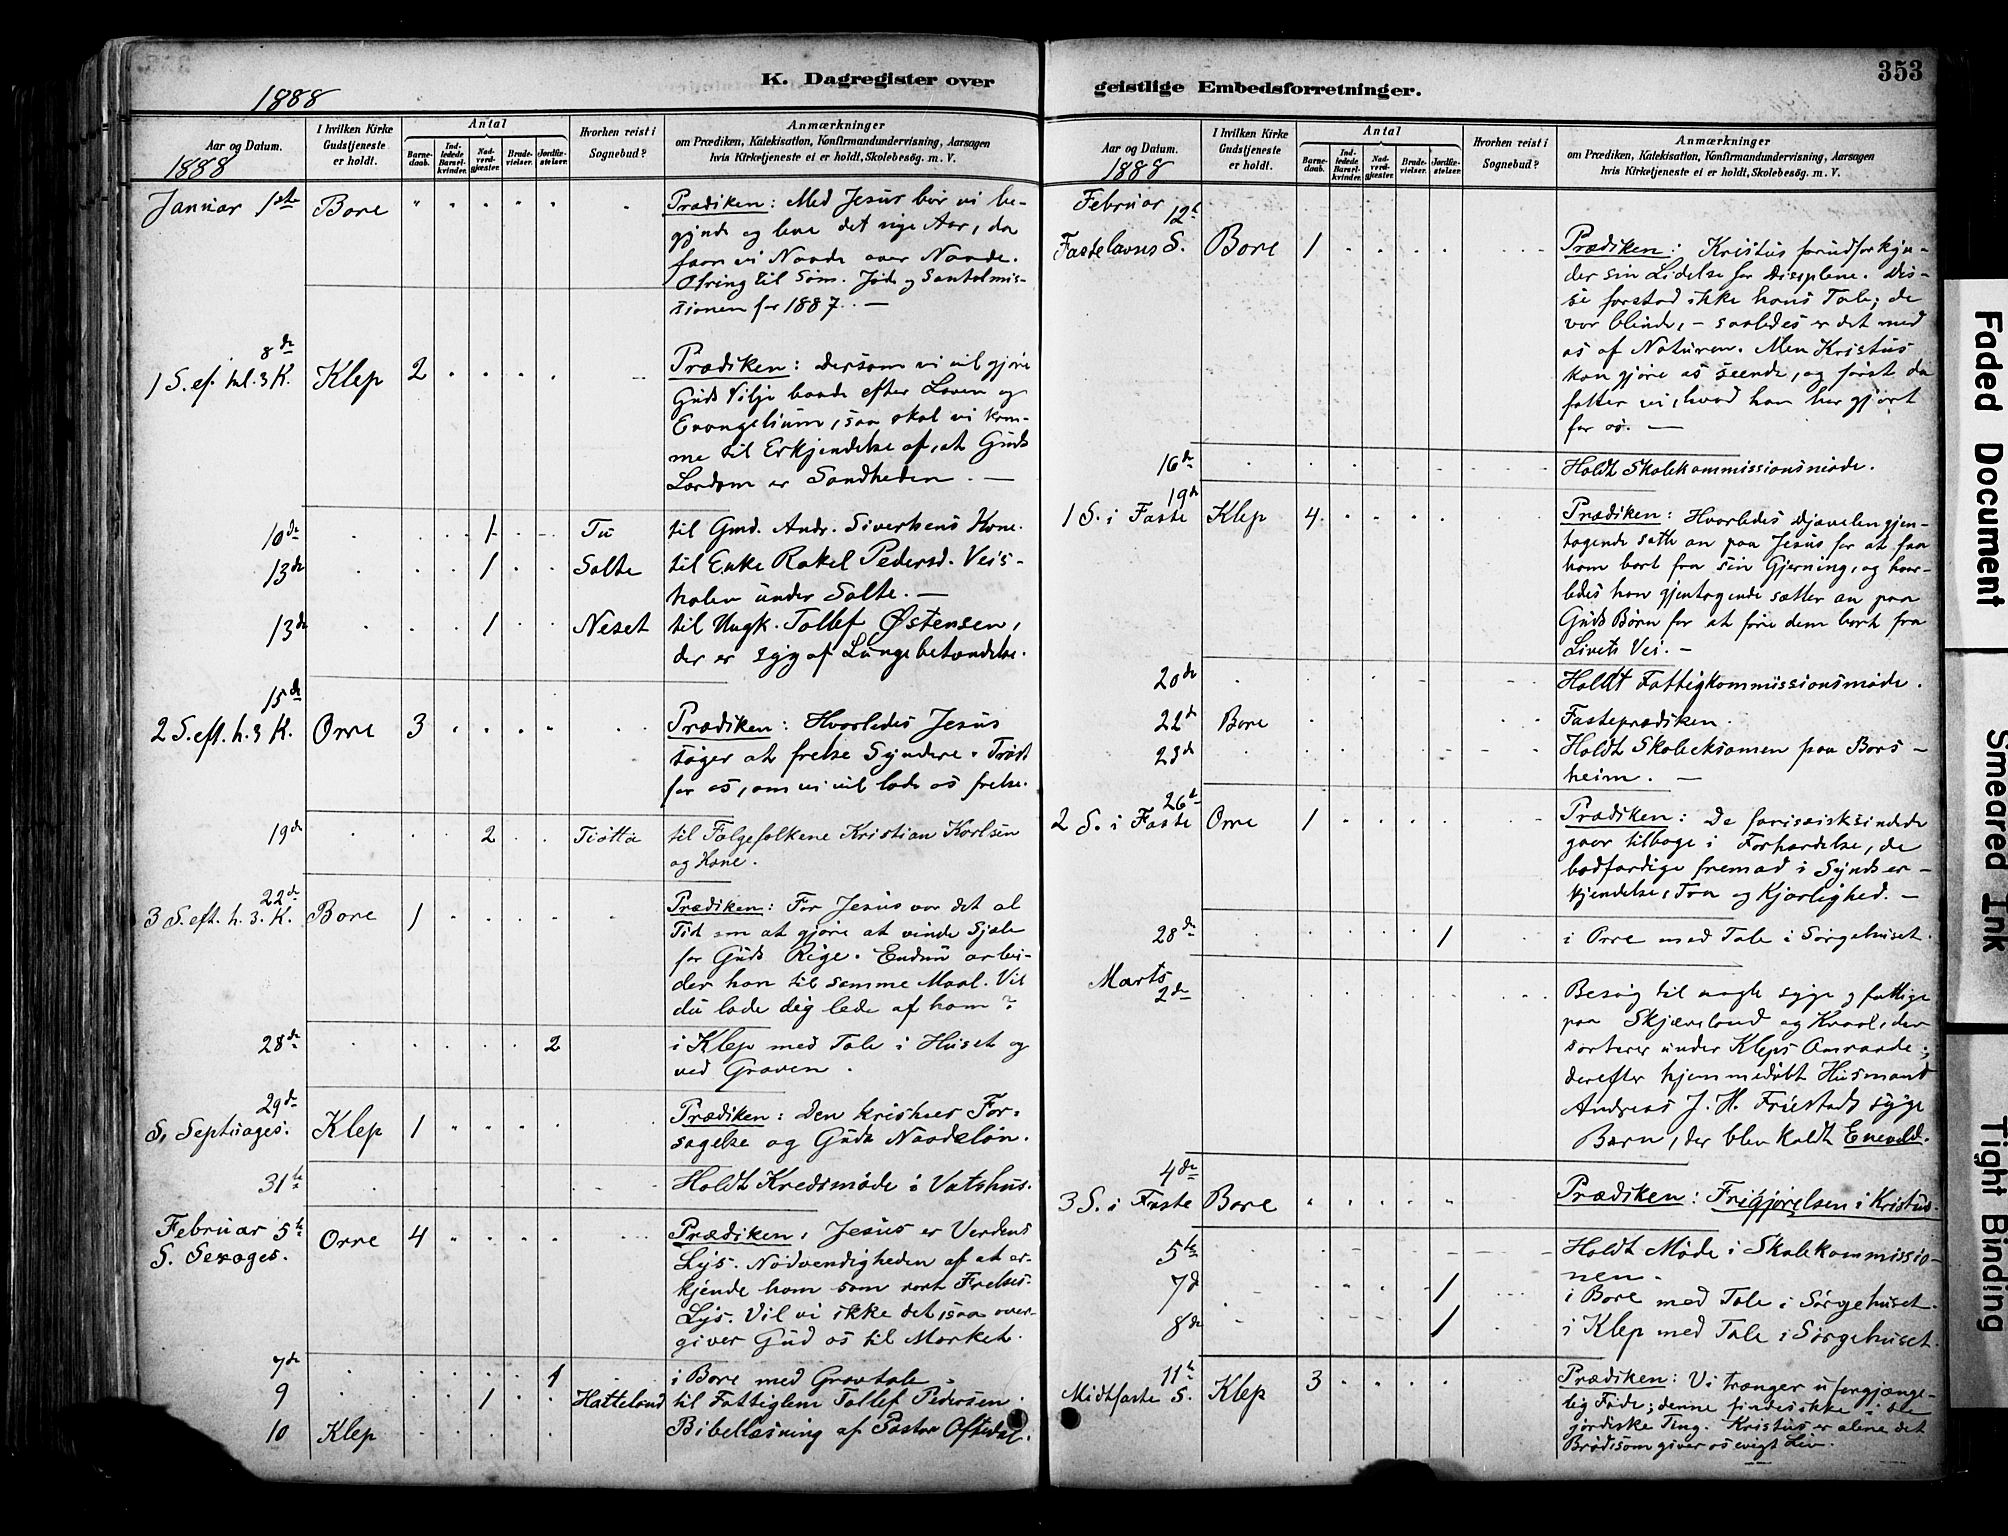 1888
K. Dagregister over
Aar og Datum.
1888
I hvilken Kirke
Gudstjeneste
er holdt.
Antal
Barne-
daab.
Ind-
ledede
Barsel-
kvinder.
Nad-
verd-
gjæster.
Brude-
vielser.
Jordfæ-
stelser.
Hvorhen reist i
Sognebud?
Anmærkninger
om Prædiken, Katekisation, Konfirmandundervisning, Aarsagen
hvis Kirketjeneste ei er holdt, Skolebesög. m. V.
Januar 1ste Bore Prædiken: Med Jesus bør vi be-
gynde og leve det nye Aar, da
faar vi Naade over Naade.
Ofring til Søm. Jøde og Santalmis-
sionen for 1887. —
8de
1 S. ef. hel. 3 K. Klep 2 Prædiken: Dersom vi vil gjøre
Guds Vilje baade efter Loven og
Evangelium, saa skal vi kom-
me til Erkjendelse af, at Guds
Lærdom er Sandheden. —
10de 1 Tu til Gmd. Andr. Sivertsens Kone.
13de 1 Salte til Enke Rakel Pedersd. Veis-
holen under Salte. —
13de 1 Neset til Ungk. Tollef Østensen,
der er syg af Lungebetændelse.
15de
2 S. eft. h. 3 K. Orre 3 Prædiken: Hvorledes Jesus
søger at frelse Syndere. Trøst
for os, om vi vil lade os frelse.
19de 2 Tiøtta til Følgefolkene Kristian Karlsen
og Kone.
22de
3 S. eft. h. 3. K. Bore 1 Prædiken: For Jesus var det al
Tid om at gjøre at vinde Sjæle
for Guds Rige. Endnu arbei-
der han til samme Maal. Vil
du lade dig lede af ham?
28de 2 i Klep med Tale i Huset og
ved Graven.
29de
S. Septuages. Klep 1 Prædiken: Den kristnes For-
sagelse og Guds Naadeløn.
31te Holdt Kredsmøde i Vatshus.
Februar 5te
S. Sexages. Orre 4 Prædiken: Jesus er Verdens
Lys. Nødvendigheden af at er-
kjende ham som vort Frelses-
Lys. Vil vi ikke det, saa over-
giver Gud os til Mørket.
7de 1 i Bore med Gravtale.
9 1 Hatteland til Fattiglem Tollef Pedersen.
10 Klep Bibellæsning af Pastor Oftedal.
geistlige Embedsforretninger.
353
Aar og Datum.
1888
I hvilken Kirke
Gudstjeneste
er holdt.
Antal
Barne-
daab.
Ind-
ledede
Barsel-
kvinder.
Nad-
verd-
gjæster.
Brude-
vielser.
Jordfæ-
stelser.
Hvorhen reist i
Sognebud?
Anmærkninger
om Prædiken, Katekisation, Konfirmandundervisning, Aarsagen
hvis Kirketjeneste ei er holdt, Skolebesög. m. V.
Februar
12te
Fastelavns S. Bore 1 Prædiken: Kristus forudforkyn-
der sin Lidelse for Disciplene. Dis-
se forstod ikke hans Tale; de
var blinde, – saaledes er det med
os af Naturen. Men Kristus
kan gjøre os seende, og først da
fatter vi, hvad han har gjørt
for os. —
16de Holdt Skolekommissionsmøde.
19de
1 S. i Faste Klep 4 Prædiken: Hvorledes Djævelen gjen-
tagende satte an paa Jesus for at faa
ham bort fra sin Gjerning, og hvor-
ledes han gjentagende sætter an paa
Guds Børn for at føre dem bort fra
Livets Vei. –
20de Holdt Fattigkommissionsmøde.
22de Bore Fasteprædiken.
23de Holdt Skoleeksamen paa Bors-
heim. —
26de
2 S. i Faste Orre 1 Prædiken: De farisæisksindede
gaar tilbage i Forhærdelse, de
bodfærdige fremad i Synds er-
kjendelse, Tro og Kjærlighed. –
28de 1 i Orre med Tale i Sørgehuset.
Marts
2de Besøg til nogle syge og fattige
paa Skjæveland og Kvaal, der
sorterer under Kleps Omraade;
derefter hjemmedøbt Husmand
Andreas J. H. Friestads syge
Barn, der blev kaldt Enevald.
4de
3 S. i Faste Bore Prædiken: Frigjørelsen i Kristus.
5te Holdt Møde i Skolekommissio-
nen.
7de 1 i Bore med Tale i Sørgehuset.
8de 1 i Klep med Tale i Sørgehuset.
11te
Midtfaste S. Klep 3 Prædiken: Vi trænger uforgjænge-
lig Føde; denne findes ikke i de
jordiske Ting. Kristus er alene det
Brød, som giver os evigt Liv.
Faded Document
Smeared Ink
Tight Binding